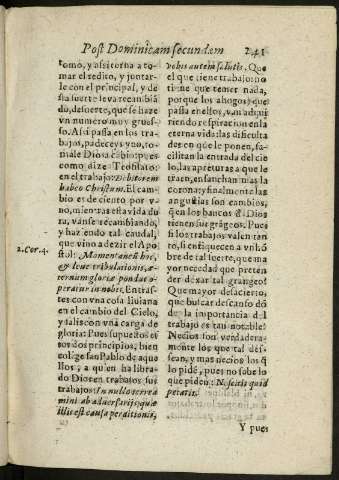 Post Dominicam secundam 241
tomo, y assi torna a to-
mar el redito, y juntar-
le con el principal, y de
sta suerte le va recambiã
do, de suerte, que se haze
vn numero muy grues-
so. Assi passa en los tra-
bajos, padeceys vno, to-
male Dios a cãbio: pues
como dize Teofilato:
en el trabajo: Debitorem
habeo Christum. El cam-
bio es de ciento por v
no, mientras esta vida du
ra, vanse recambiando,
y haziendo tal caudal,
que vino a dezir el Apo
2. Cor. 4.
stol: Momentaneũ hoc,
& leue tribulationis, æ-
ternum gloriæ pondus o-
peratur in nobis. Entras-
tes con vna cosa liuiana
en el cambio del Cielo,
y salis con vna carga de
gloria: Pues supuestos es
sos dos principios, bien
colige san Pablo de aque
llos, a quiẽ ha libra-
do Dios en trabajos sus
trabajos: In nullo terrea
mini ab aduersarijs, quæ
illis est causa perditionis,
vobis autem salutis. Que
el que tiene trabajo: no
tiene que temer nada,
porque los ahogos, que
passa en ellos, van adqui
riendo respiracion en la
eterna vida: las dificulta
des en que le ponen, fa-
cilitan la entrada del cie
lo, las apreturas a que le
traen, ensanchan mas la
corona: y finalmente las
angustias son cambios,
q̃ en los bancos de Dios
tienen sus grãgeos. Pues
si los trabajos valen tan
to, si enriquecen a vn hõ
bre de tal suerte, que ma
yor necedad que preten
der dexar tal grangeo?
Que mayor desacierto,
que buscar descanso dõ
de la importancia del
trabajo es tan notable?
Necios son verdadera-
mente los que tal dès-
sean, y mas necios los q̃
lo pidẽ, pues no sabe lo
que piden: Nescitis quid
petatis.
Y pues